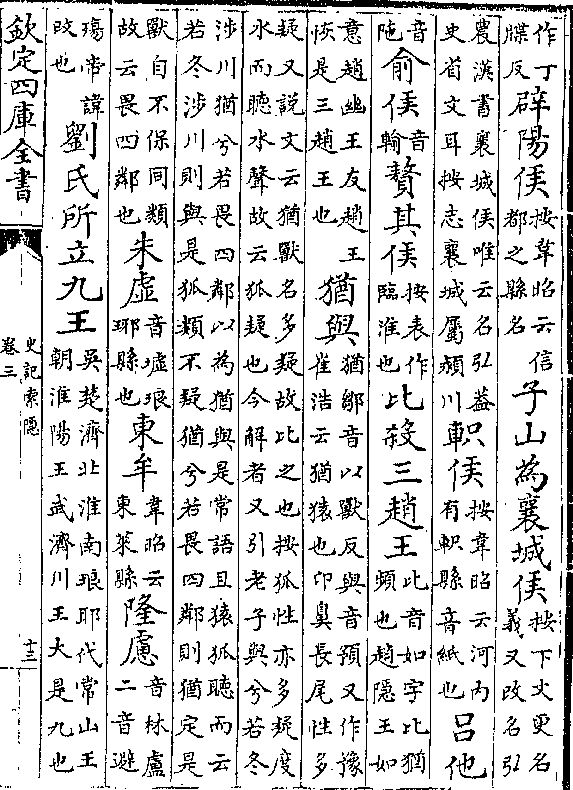 作丁牒反辟陽侯按韋昭云信都之縣名子山為襄城侯按下文更名義又改名弘
農漢書襄城侯唯云名弘蓋史省文耳按志襄城屬潁川軹侯按韋昭云河内有軹縣音紙也呂他
音陁俞侯音輸贅其侯按表作臨淮也比殺三趙王此音如字比猶頻也趙隱王如
意趙幽王友趙王恢是三趙王也猶與猶鄒音以獸反與音預又作豫崔浩云猶猿也卬鼻長尾性多
疑又說文云猶獸名多疑故比之也按狐性亦多疑度水而聽水聲故云狐疑也今解者又引老子與兮若冬
涉川猶兮若畏四鄰以為猶與是常語且猿狐聽而云若冬涉川則與是狐類不疑猶兮若畏四鄰則猶定是
獸自不保同類故云畏四鄰也朱虛音墟琅耶縣也東牟韋昭云東萊縣隆慮音林廬二音避
殤帝諱改也劉氏所立九王吳楚濟北淮南琅耶代常山王朝淮陽王武濟川王大是九也
欽定四庫全書
史記索隱
卷三
十三